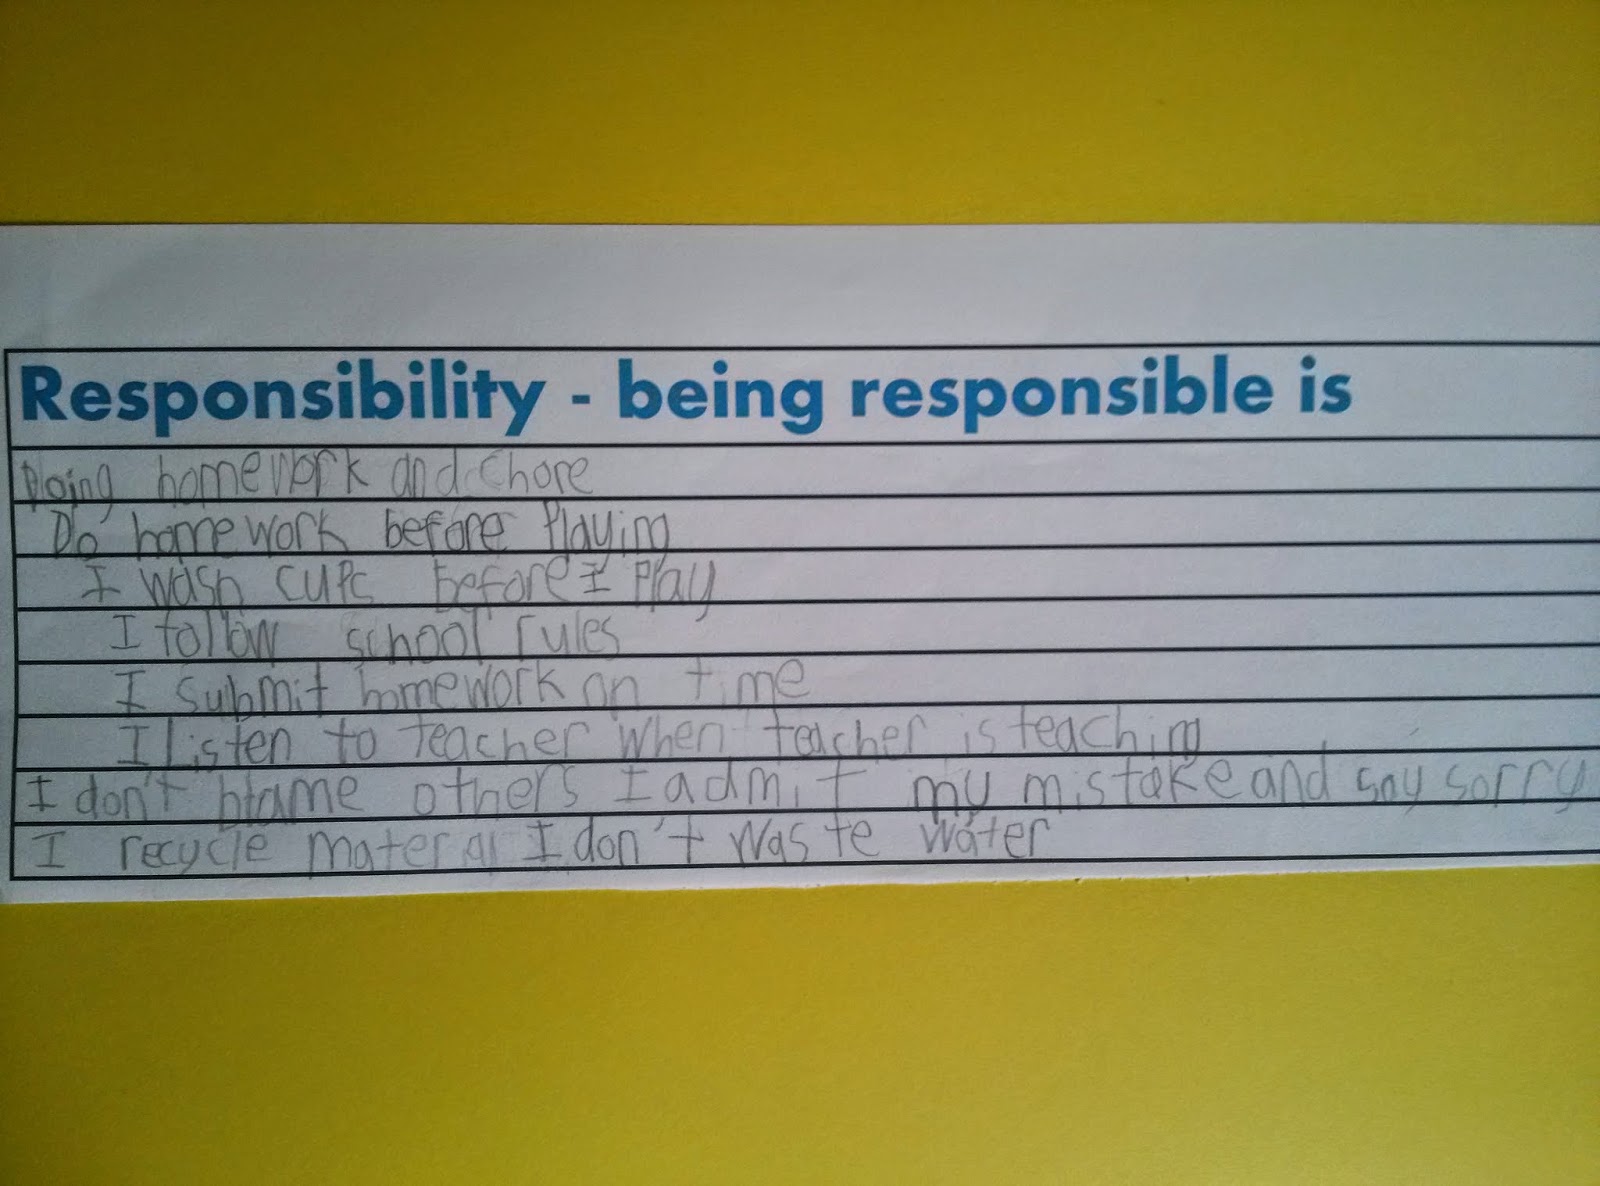 Responsibility - being responsible is
Doing homework and chore
Do homework before Playing
I wash cups before I Play
I follow school rules
I submit homework on time
I listen to teacher when teacher is teaching
I don't blame others I admit my mistake and say sorry
I recycle materal I don't waste water